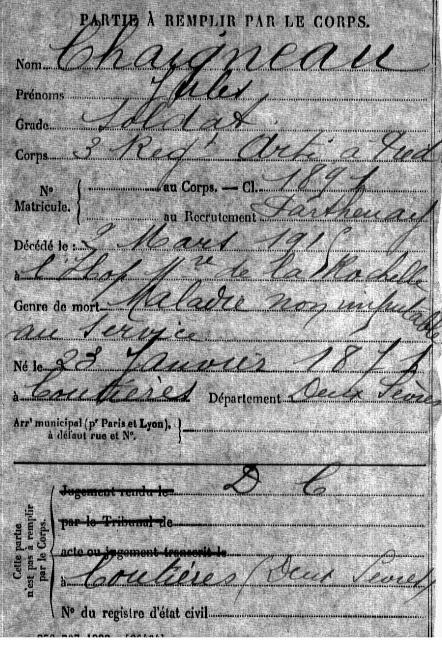 PARTIE À REMPLIR PAR LE CORPS.
Nom Chaigneau
Prénoms Jules
Grade Soldat
Corps 3 Reg^t Art^ie à Pied
N° Matricule. { au Corps. — Cl. 1891
au Recrutement Parthenay
Décédé le : 2 Mars 191
à l'Hop M^re de la Rochelle
Genre de mort Maladie non imputable
au Service
Né le 23 Janvier 1871
à Coutières Département Deux Sèvres
Arr^t municipal (p^r Paris et Lyon),
à défaut rue et N°.
Cette partie n'est pas à remplir par le Corps.
Jugement rendu le D C
par le Tribunal de
acte ou jugement transcrit le
à Coutières (Deux Sèvres)
N° du registre d'état civil